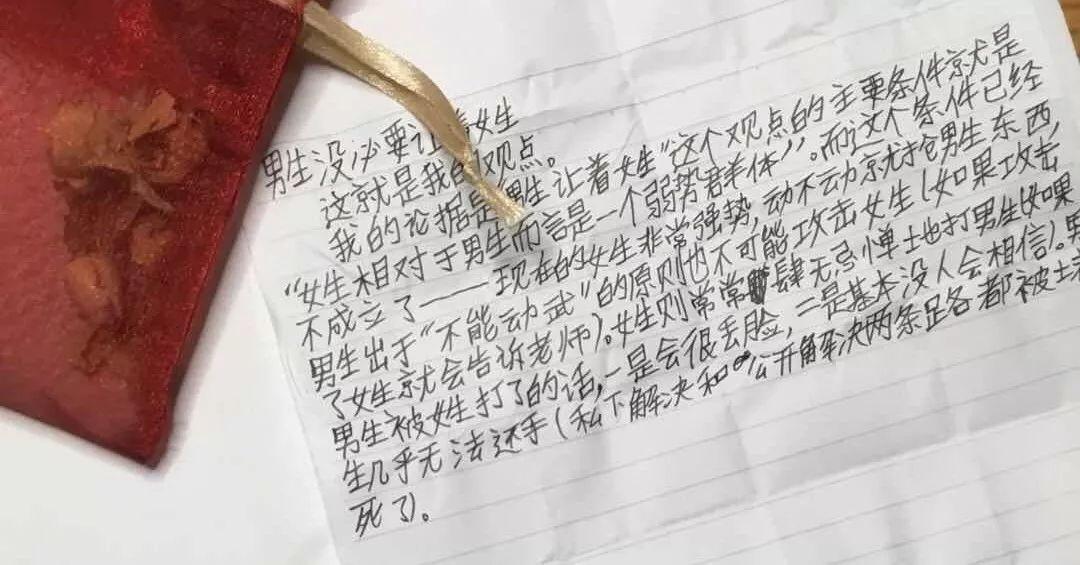 男生没必要让着女生
这就是我的观点。
我的论据是男生让着女生”这个观点的主要条件就是
“女生相对于男生而言是一个弱势群体”。而这个条件已经
不成立了——现在的女生非常强势,动不动就抢男生东西,
男生出于“不能动武”的原则也不可能攻击女生(如果攻击
了女生就会告诉老师)。女生则常常肆无忌惮地打男生(如果
男生被女生打了的话,一是会很丢脸,二是基本没人会相信)。男
生几乎无法还手(私下解决和公开解决两条路都被堵
死了)。